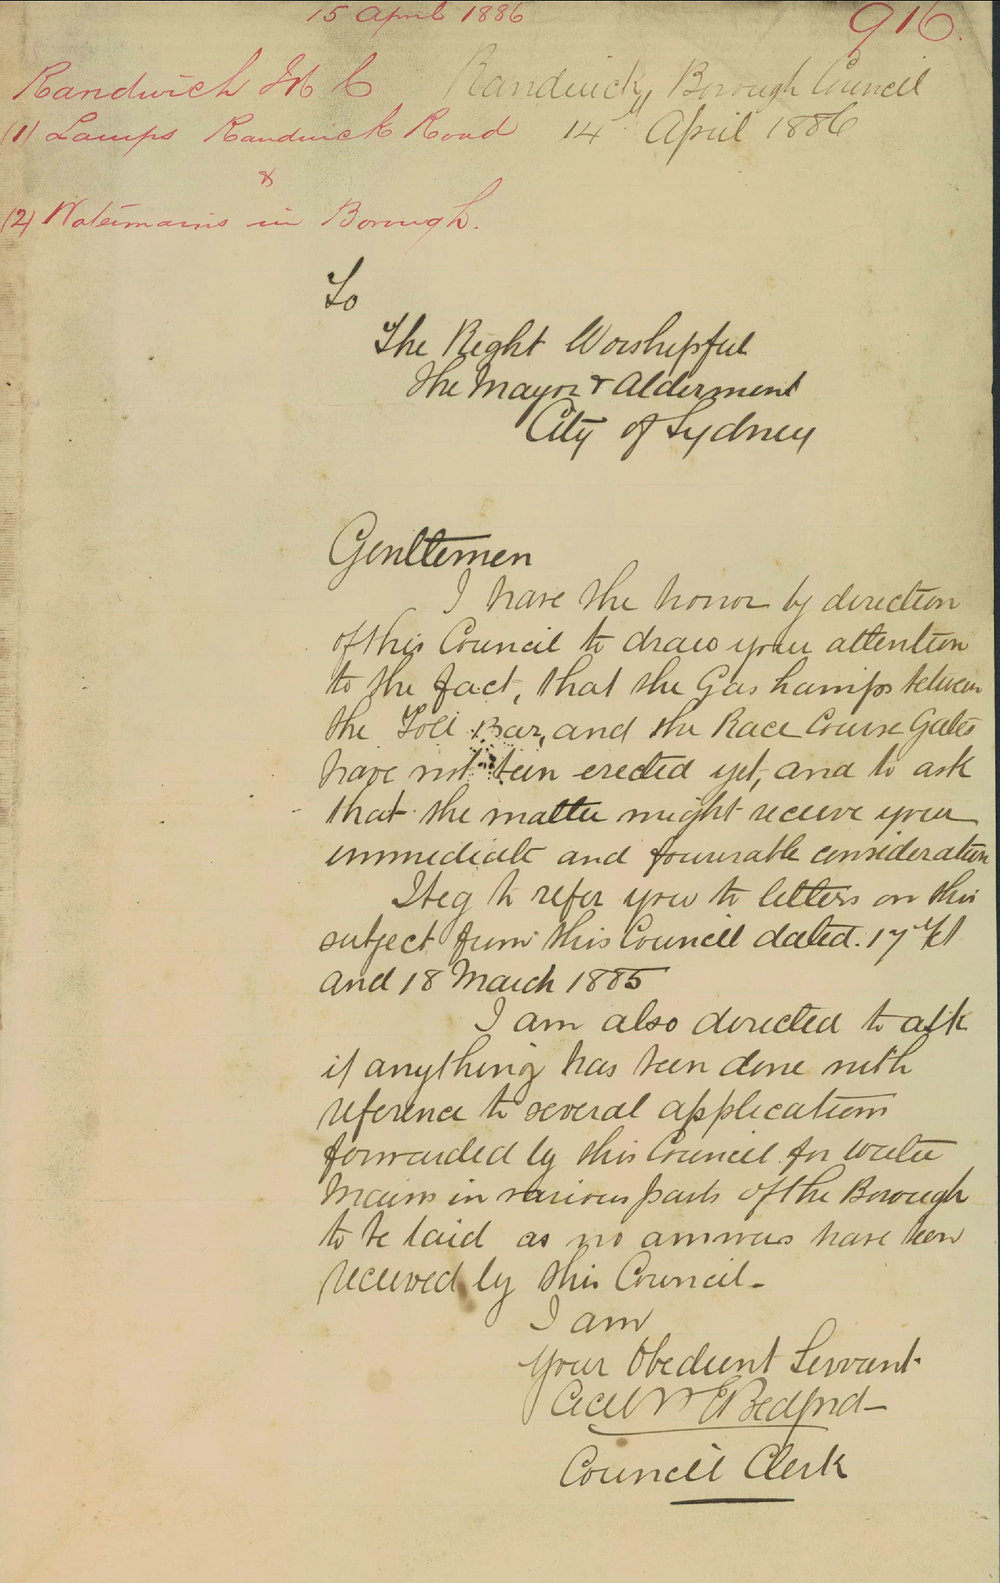 15 April 1886
916.
Randwich M C
(1) Lamps Randwick Road
&
(2) Watermains in Borough.
Randwick, Borough Council
14" April 1886
To
The Right Worshipful
The Mayor & Alderment
City of Sydney
Genltemen
I have the honor by direction
of this Council to draw your attention
to the fact, that the Gas Lamps between
the Toll Bar, and the Race Course Gates
have not been erected yet, and to ask
that the matter might receive your
immediate and favourable consideration
I beg to refer you to letters on this
subject from this Council dated. 17
and 18 March 1885
I am also directed to ask
if anything has been done with
reference to several applications
forwarded by this Council for water
Mains in various parts of the Borough
to be laid as no answers have been
received by this Council -
I am
Your Obedient Servant
Cecil Bedford
Council Clerk